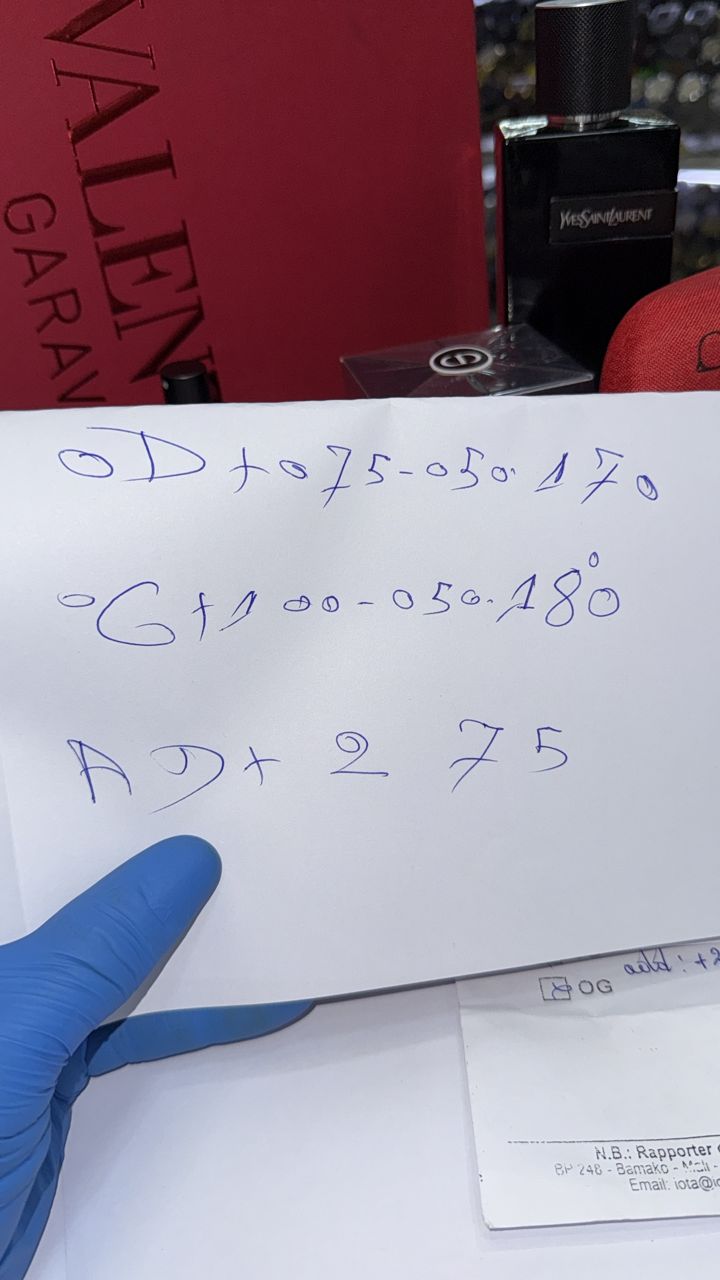 VALEN
GARAV
YVESSAINTLAURENT
OD + 075 - 050. 170
OG + 100 - 050. 180°
AD + 2 75
add : +2
OG
N.B.: Rapporter
BP 248 - Bamako - Mali -
Email: iota@io